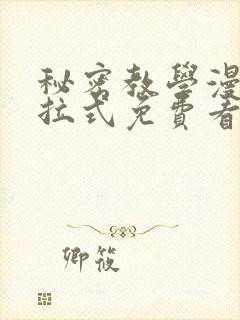 秘密教學漫
拉式免費看
卿筱